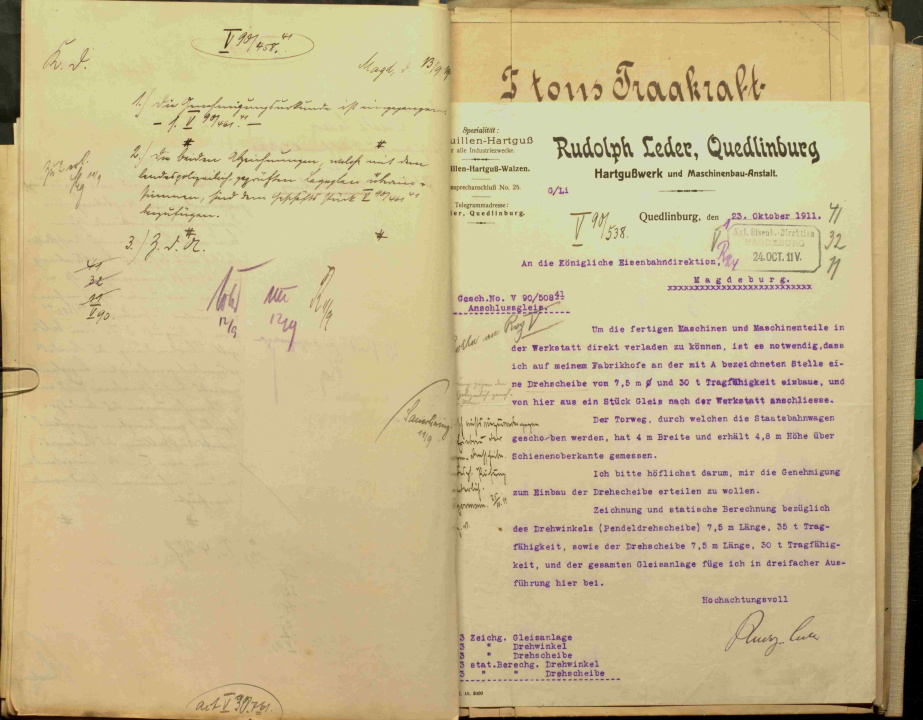 V 90/458. 41
K. D.
Magd, d. 13/9
1.) Die Genehmigungsurkunde ist eingegangen
- s. V 90/461. 41 -
2.) Die beiden Abzeichnungen, welche mit dem
landespolizeilich geprüften Lageplan überein-
stimmen, sind dem Geschäfts Stück V 90/461 41
beizufügen.
3.) Z. d. A.
41
32
11
V 90.
12/9
12/9
act V 90.461.
5 tons Tragkraft
Spezialität:
uillen-Hartguß
r alle Industriezwecke.
illen-Hartguß-Walzen.
nsprechanschluß No. 25.
Telegrammadresse:
er, Quedlinburg.
Rudolph Leder, Quedlinburg
Hartgußwerk und Maschinenbau-Anstalt.
G/Li
V 90/538.
Quedlinburg, den 23. Oktober 1911.
41
32
11
Kgl. Eisenb.-Direktion
MAGDEBURG
24.OCT.11 V.
An die Königliche Eisenbahndirektion,
Magdeburg.
xxxxxxxxxxxxxxxxxxxx
Gesch.No. V 90/508 41
Anschlussgleis.
Um die fertigen Maschinen und Maschinenteile in
der Werkstatt direkt verladen zu können, ist es notwendig,dass
ich auf meinem Fabrikhofe an der mit A bezeichneten Stelle ei-
ne Drehscheibe von 7,5 m Ø und 30 t Tragfähigkeit einbaue, und
von hier aus ein Stück Gleis nach der Werkstatt anschliesse.
Der Torweg, durch welchen die Staatsbahnwagen
geschoben werden, hat 4 m Breite und erhält 4,8 m Höhe über
Schienenoberkante gemessen.
Ich bitte höflichst darum, mir die Genehmigung
zum Einbau der Drehscheibe erteilen zu wollen.
Zeichnung und statische Berechnung bezüglich
des Drehwinkels (Pendeldrehscheibe) 7,5 m Länge, 35 t Trag-
fähigkeit, sowie der Drehscheibe 7,5 m Länge, 30 t Tragfähig-
keit, und der gesamten Gleisanlage füge ich in dreifacher Aus-
führung hier bei.
Hochachtungsvoll
3 Zeichg. Gleisanlage
3 " Drehwinkel
3 " Drehscheibe
3 stat.Berechg. Drehwinkel
3 " " Drehscheibe